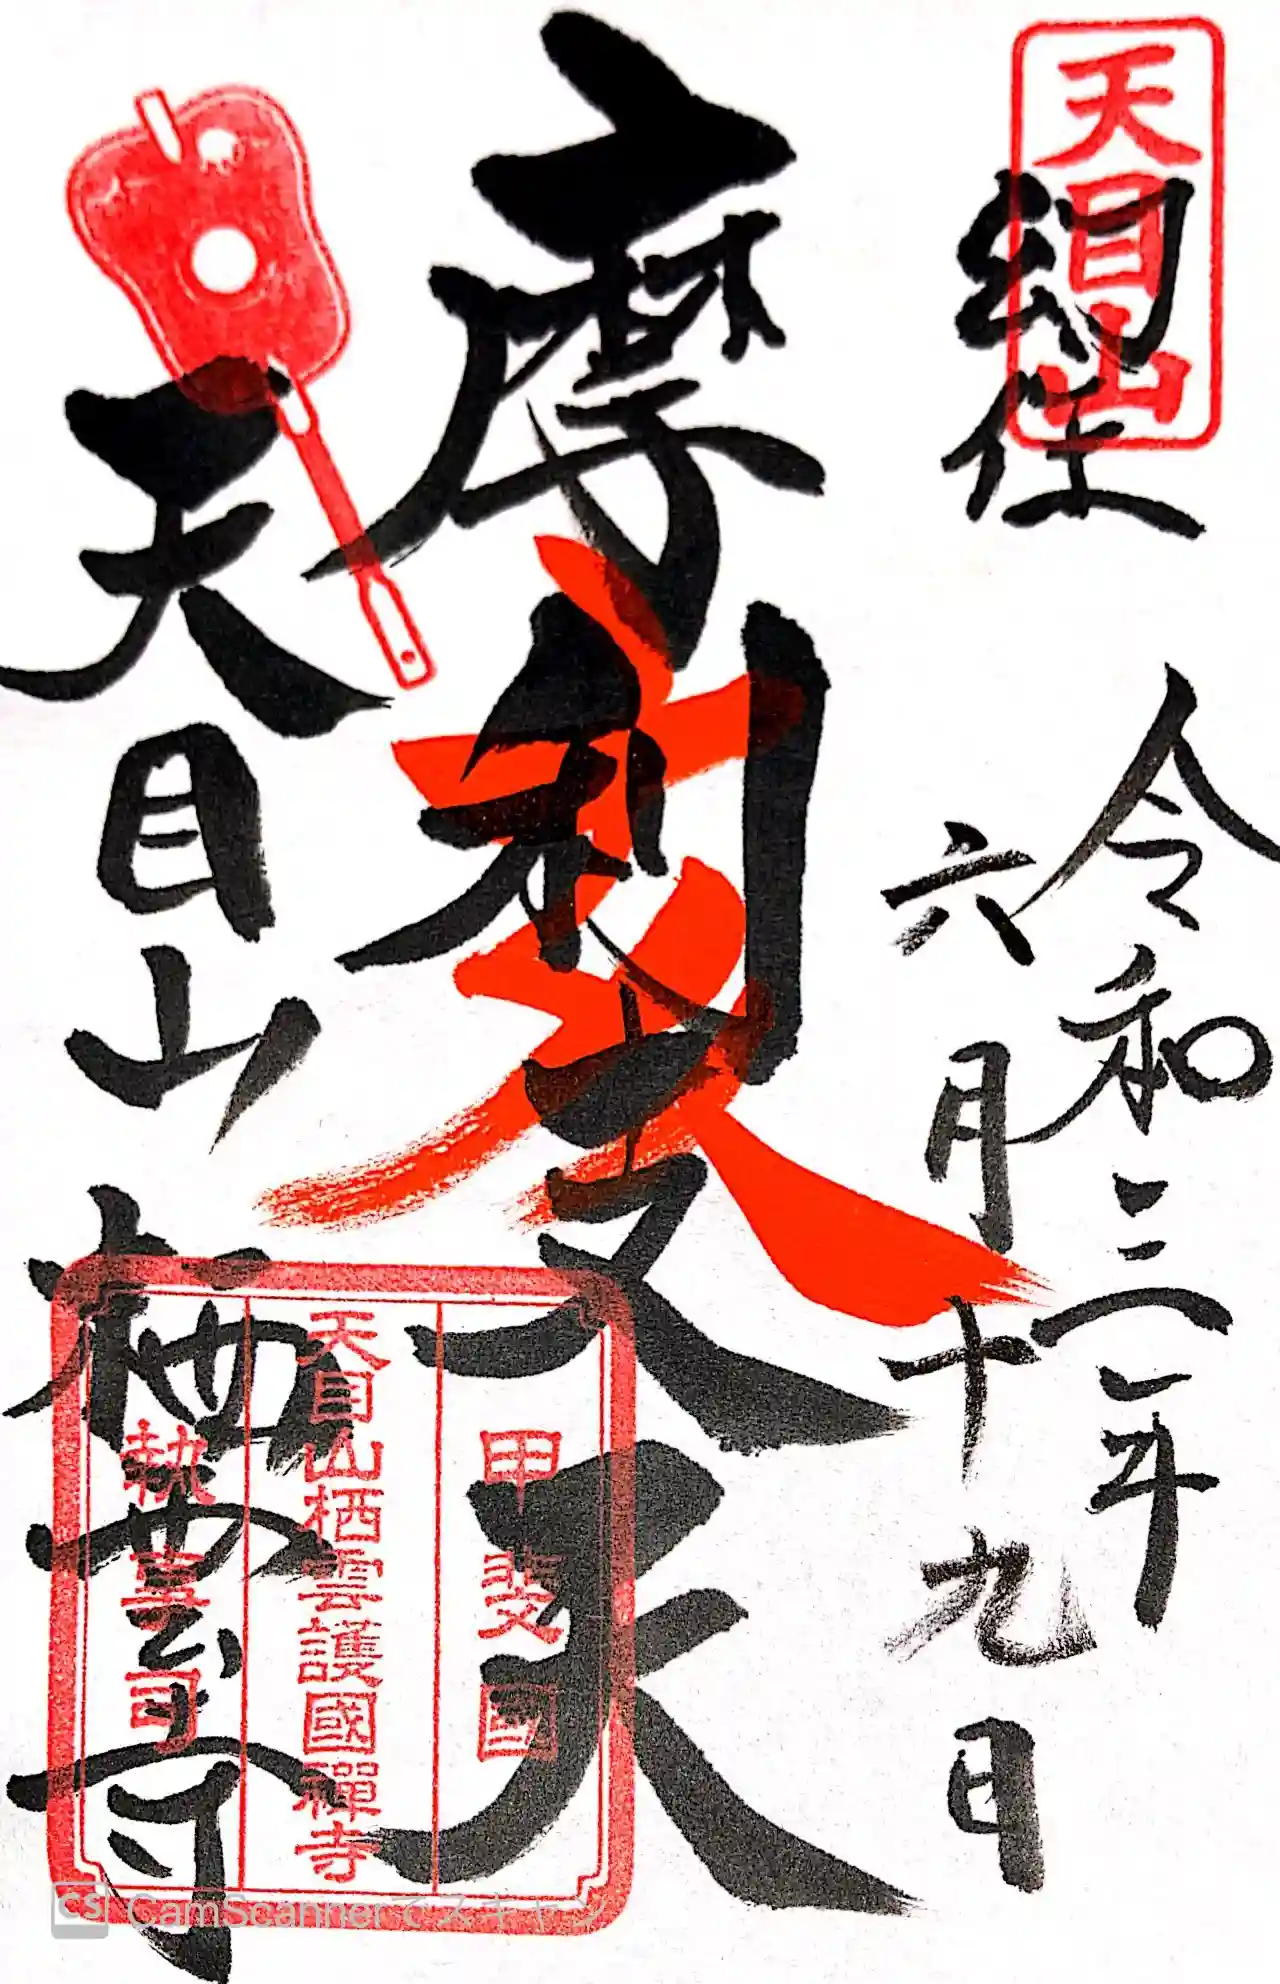 天目山
納任
令和三年
六月十九日
摩利支天
天目山
栖雲寺
甲斐國
天目山栖雲護國禪寺
執事司
CS CamScannerでスキャン